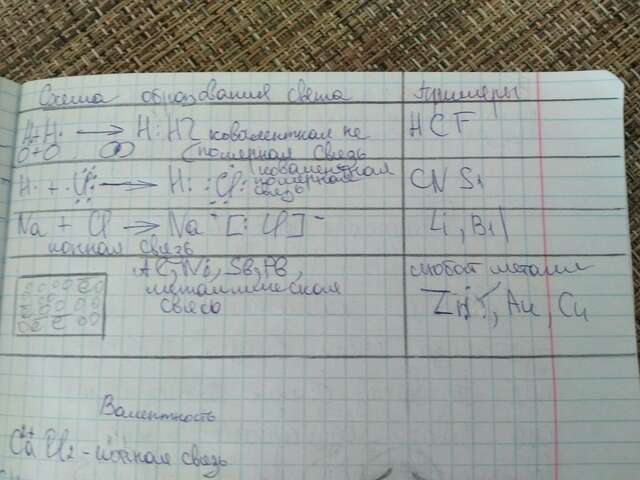 Схема образования связи
Примеры
H· + H· → H : H
ковалентная не
полярная связь
H C F
H· + ·Cl: → H : Cl:
ковалентная
полярная
связь
C N S
Na + Cl → Na⁻ [: Cl]⁻
ионная связь
Li, Br
Al, Ni, Sb, Pb,
металлическая
связь
любой металл
Zn, Au, Cu
Валентность
Ca²⁺Cl₂ - ионная связь